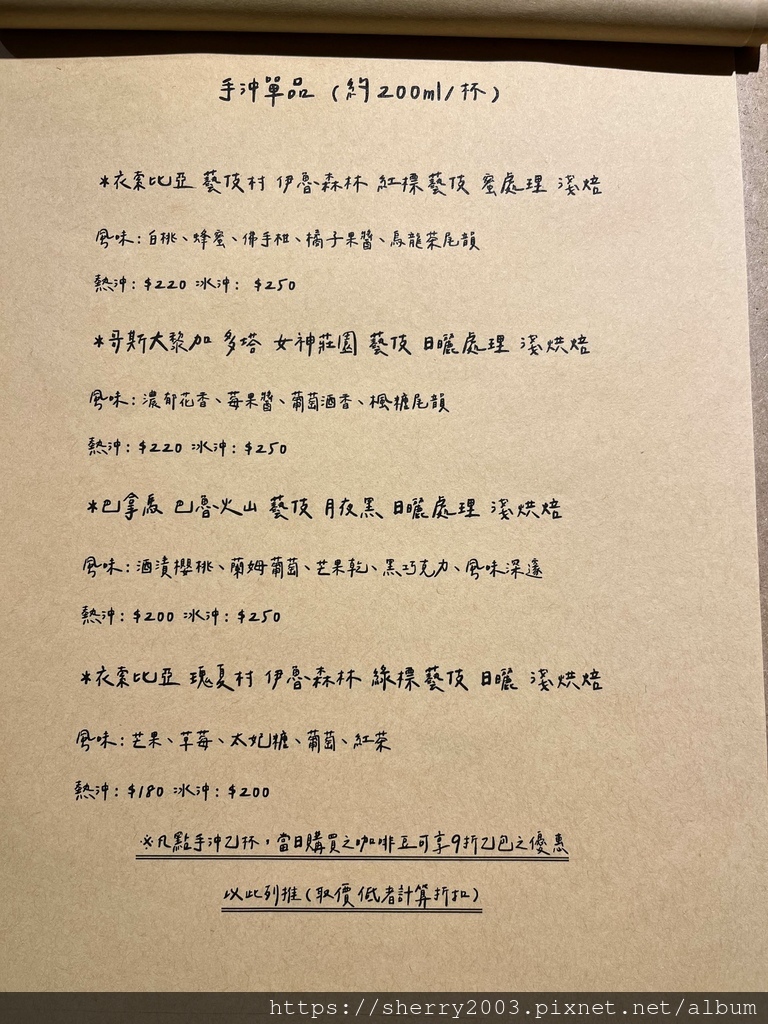 手沖單品 (約200ml/杯)
*衣索比亞 藝伎村 伊魯森林 紅標藝伎 蜜處理 淺焙
風味:白桃、蜂蜜、佛手柑、橘子果醬、烏龍茶尾韻
熱沖:$220 冰沖:$250
*哥斯大黎加 多塔 女神莊園 藝伎 日曬處理 淺烘焙
風味:濃郁花香、莓果醬、葡萄酒香、楓糖尾韻
熱沖:$220 冰沖:$250
*巴拿馬 巴魯火山 藝伎 月夜黑 日曬處理 淺烘焙
風味:酒漬櫻桃、蘭姆葡萄、芒果乾、黑巧克力、風味深邃
熱沖:$200 冰沖:$250
*衣索比亞 瑰夏村 伊魯森林 綠標藝伎 日曬 淺烘焙
風味:芒果、草莓、太妃糖、葡萄、紅茶
熱沖:$180 冰沖:$200
※凡點手沖乙杯,當日購買之咖啡豆可享9折乙包之優惠
以此列推(取價低者計算折扣)
https://sherry2003.pixnet.net/album